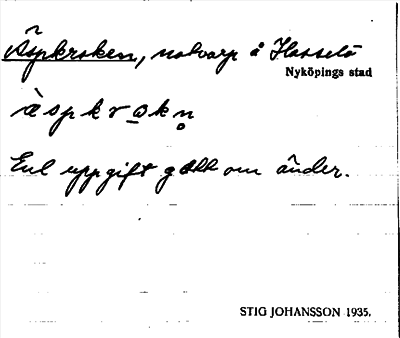 Äspkroken, notvarp å Hasselö
Nyköpings stad
äspkrokn̥
Enl uppgift gott om änder.
STIG JOHANSSON 1935.